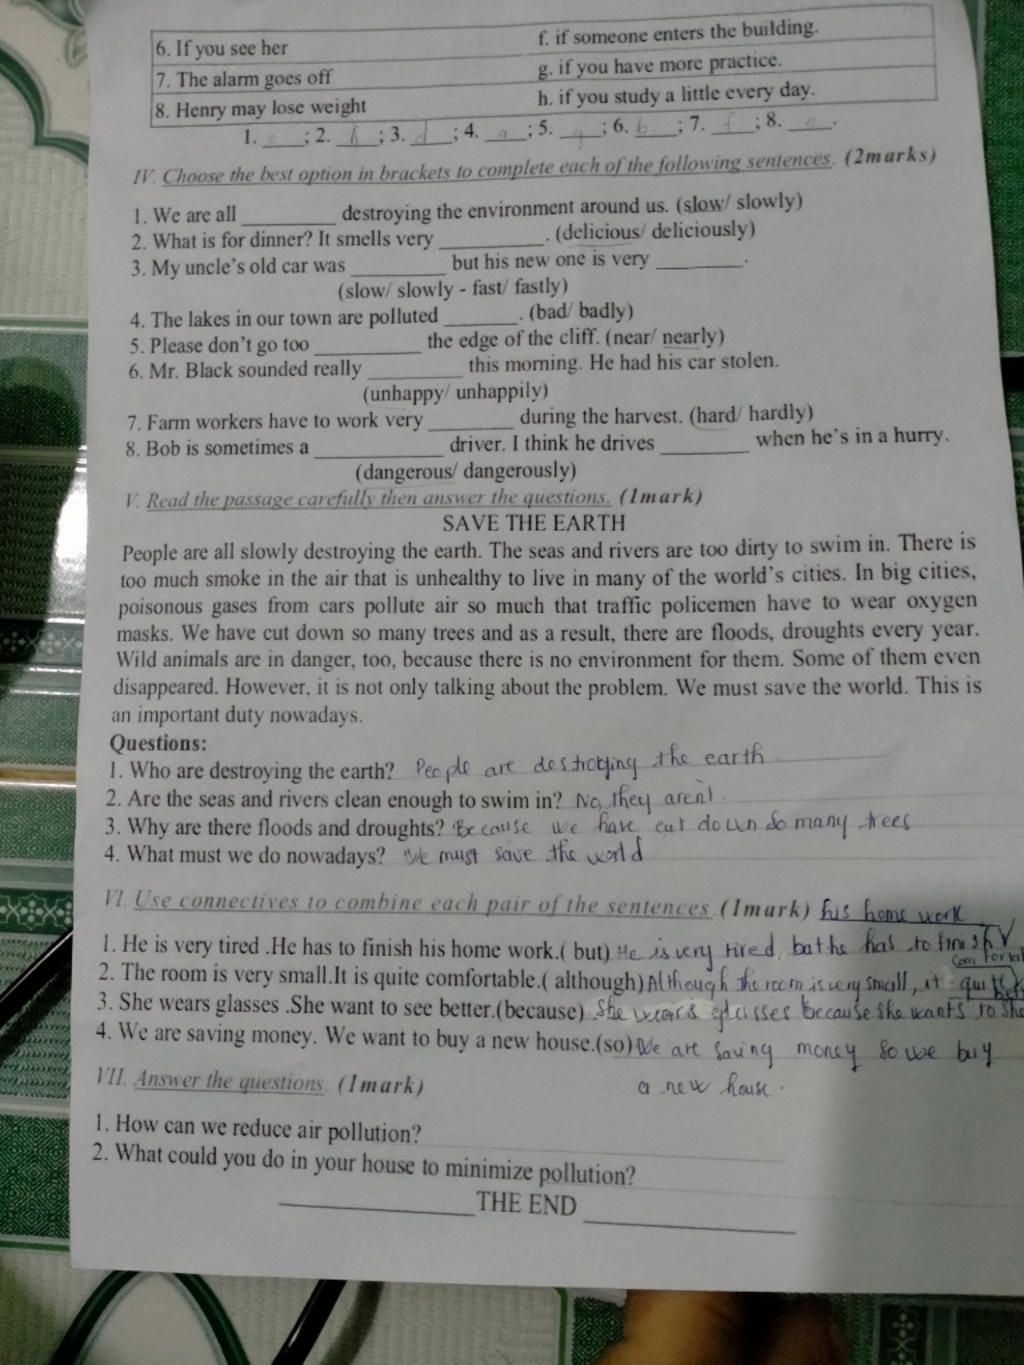 6. If you see her f. if someone enters the building.
7. The alarm goes off g. if you have more practice.
8. Henry may lose weight h. if you study a little every day.
1. e ; 2. h ; 3. d ; 4. a ; 5. g ; 6. b ; 7. f ; 8. .
IV. Choose the best option in brackets to complete each of the following sentences. (2marks)
1. We are all _________ destroying the environment around us. (slow/ slowly)
2. What is for dinner? It smells very __________. (delicious/ deliciously)
3. My uncle's old car was _________ but his new one is very ________.
(slow/ slowly - fast/ fastly)
4. The lakes in our town are polluted _______. (bad/ badly)
5. Please don't go too __________ the edge of the cliff. (near/ nearly)
6. Mr. Black sounded really _________ this morning. He had his car stolen.
(unhappy/ unhappily)
7. Farm workers have to work very ________ during the harvest. (hard/ hardly)
8. Bob is sometimes a ____________ driver. I think he drives ________ when he's in a hurry.
(dangerous/ dangerously)
V. Read the passage carefully then answer the questions. (1mark)
SAVE THE EARTH
People are all slowly destroying the earth. The seas and rivers are too dirty to swim in. There is
too much smoke in the air that is unhealthy to live in many of the world's cities. In big cities,
poisonous gases from cars pollute air so much that traffic policemen have to wear oxygen
masks. We have cut down so many trees and as a result, there are floods, droughts every year.
Wild animals are in danger, too, because there is no environment for them. Some of them even
disappeared. However, it is not only talking about the problem. We must save the world. This is
an important duty nowadays.
Questions:
1. Who are destroying the earth? People are the earth
2. Are the seas and rivers clean enough to swim in? No, they aren't.
3. Why are there floods and droughts? Because we have cut down so many trees
4. What must we do nowadays? We must save the world
VI. Use connectives to combine each pair of the sentences. (1mark) his home work
1. He is very tired .He has to finish his home work.( but) He is very tired, but he has to finish
2. The room is very small.It is quite comfortable.( although) Although the room is very small, it quite
3. She wears glasses .She want to see better.(because) She wears glasses because she wants to
4. We are saving money. We want to buy a new house.(so) We are saving money so we buy
a new house.
VII. Answer the questions. (1mark)
1. How can we reduce air pollution?
2. What could you do in your house to minimize pollution?
THE END